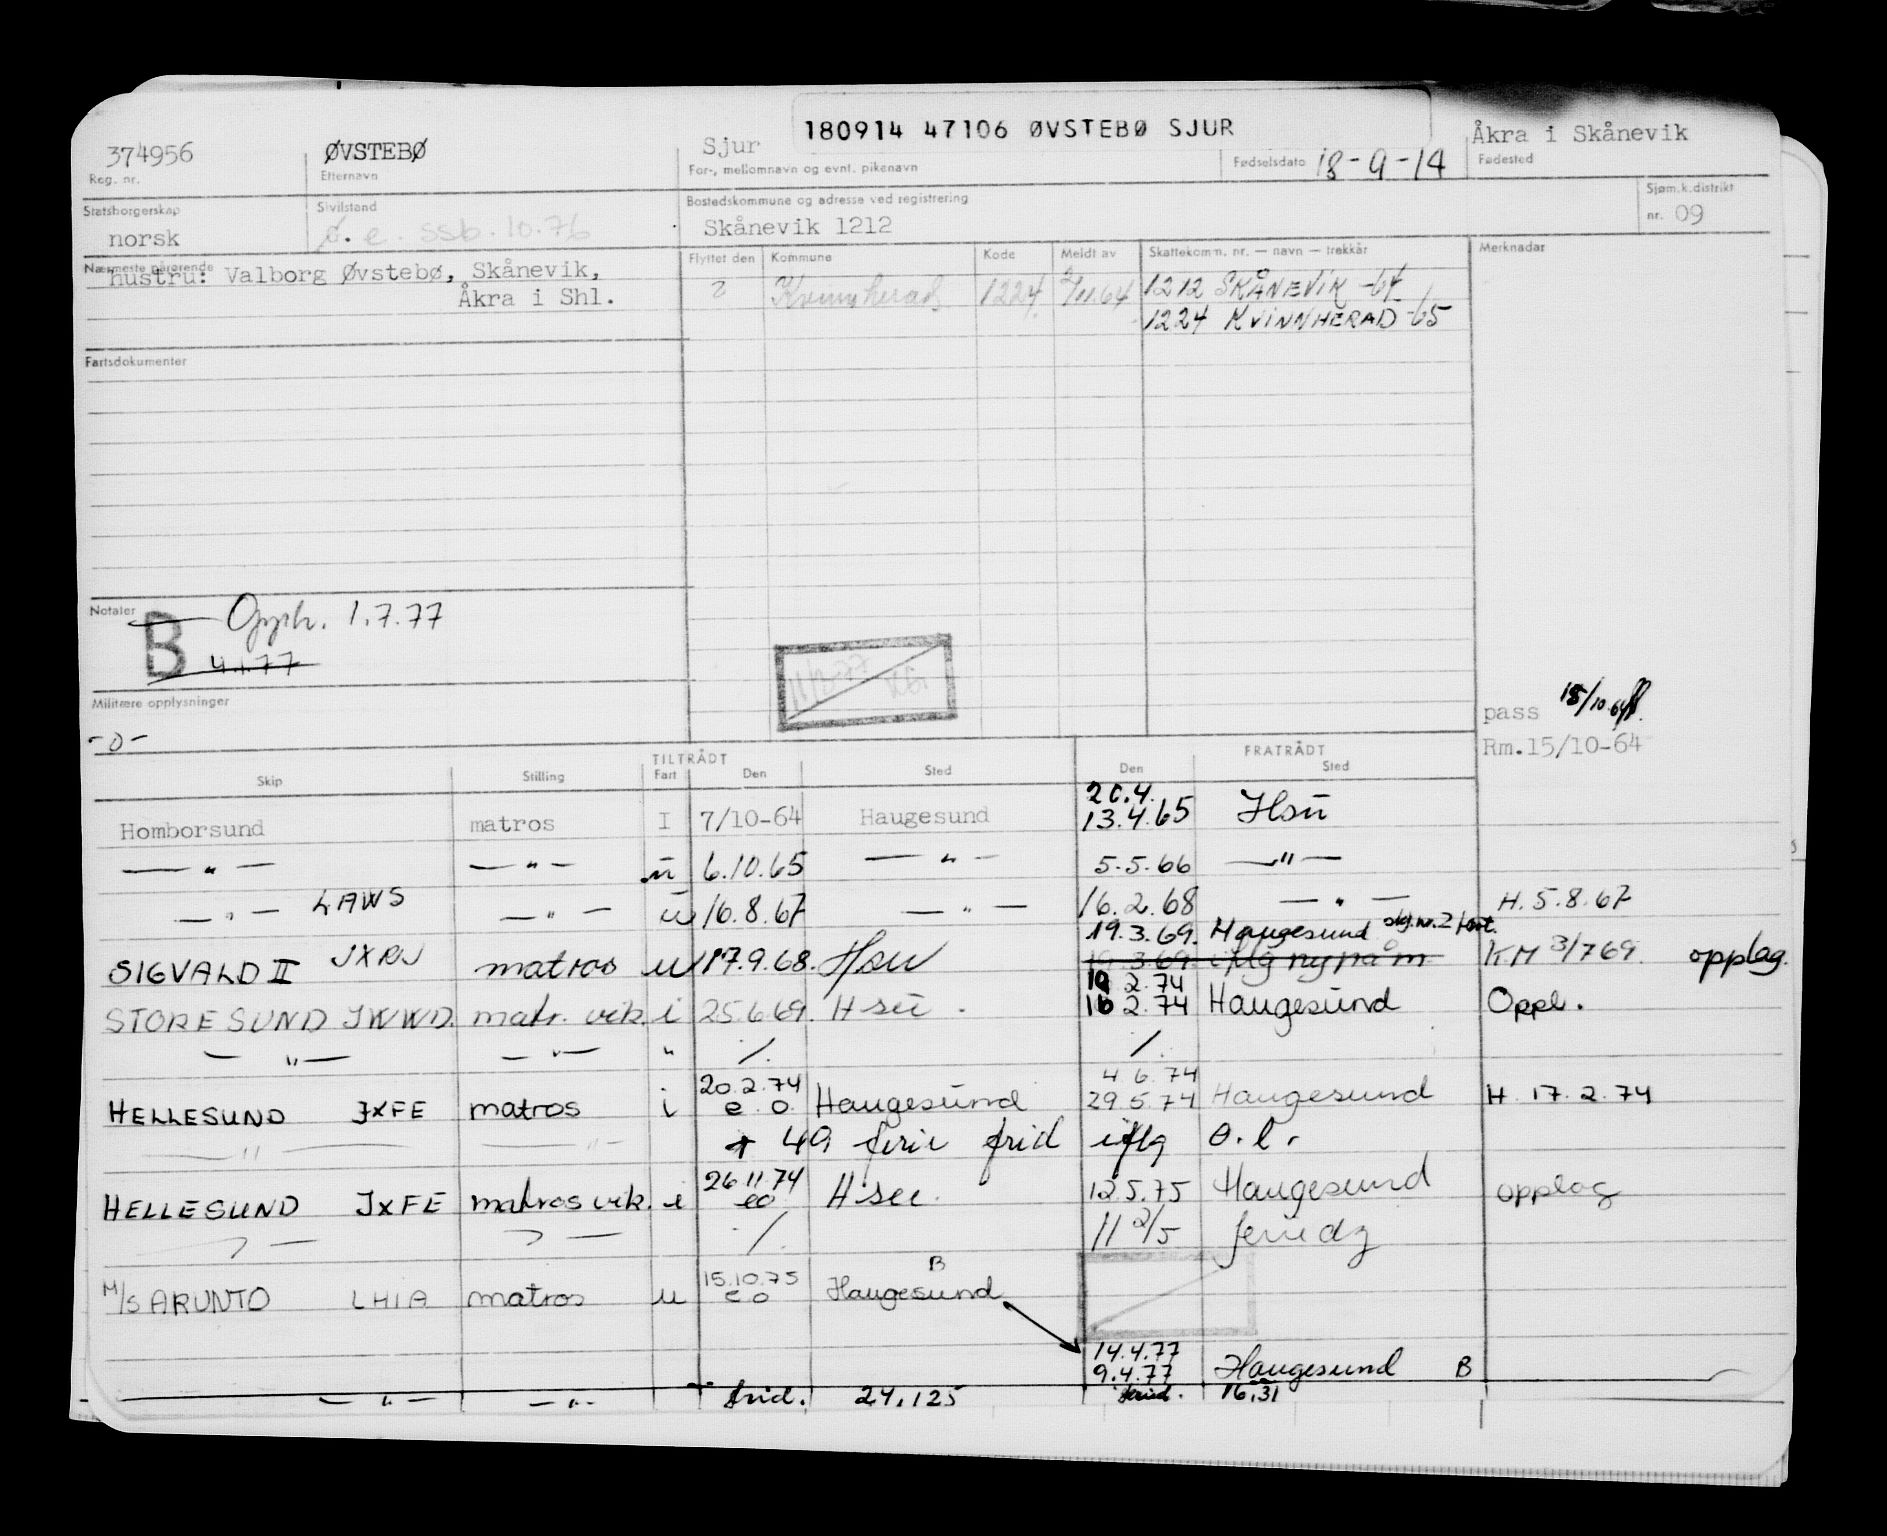 180914 47106 ØVSTEBØ SJUR
374956 ØVSTEBØ Sjur 18-9-14 Åkra i Skånevik
Reg. nr. Etternavn For-, mellomnavn og evnt. pikenavn Fødselsdato Fødested
Statsborgerskap Sivilstand Bostedskommune og adresse ved registrering Sjøm.k.distrikt
norsk e. ssb. 10.76 Skånevik 1212 nr. 09
Nærmeste pårørende Flyttet den Kommune Kode Meldt av Skattekomm. nr. — navn — trekkår Merknader
hustru: Valborg Øvstebø, Skånevik,
Åkra i Shl.
? Kvinnherad 1224 1212 SKÅNEVIK -64
1224 KVINNHERAD -65
Fartsdokumenter
Notater
B Opph. 1.7.77
4.1.77
Militære opplysninger
-0-
pass 15/10.64
Rm.15/10-64
TILTRÅDT FRATRÅDT
Skip Stilling Fart Den Sted Den Sted
20.4.
Homborsund matros I 7/10-64 Haugesund 13.4.65 Hsu
— " — — " — u 6.10.65 — " — 5.5.66 — " —
— " — LAWS — " — u 16.8.67 — " — 16.2.68 — " — H. 5.8.67
19.3.69. Haugesund
SIGVALD II JXRJ matros u 17.9.68. Hsu KM 3/769. opplag.
19 2.74
STORESUND JWWD. matr. vik. i 25.6.69. H su. 16 2.74 Haugesund Oppl.
— " — — " — " /. /.
20.2.74 4.6.74
HELLESUND JXFE matros i e.o. Haugesund 29 5.74 Haugesund H. 17.2.74
— " — — " — + 49 ferie frid iflg o.l.
26.11.74
HELLESUND JXFE matros vik. i eo H su. 12.5.75 Haugesund opplag
/. 11 2/5 feriedg
15.10.75 B
M/S ARUNTO LHIA matros u e o Haugesund
14.4.77
9.4.77 Haugesund B
— " — — " — frid. 24,125 frid. 16,31